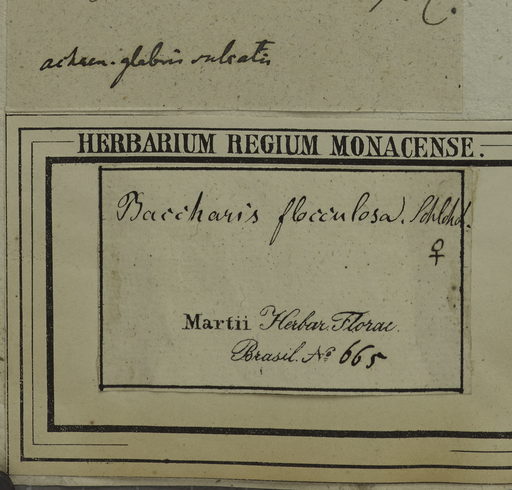 achaen. glabris sulcatis
HERBARIUM REGIUM MONACENSE.
Baccharis flocculosa. Schlchd.
♀
Martii Herbar. Florae.
Brasil. No 665